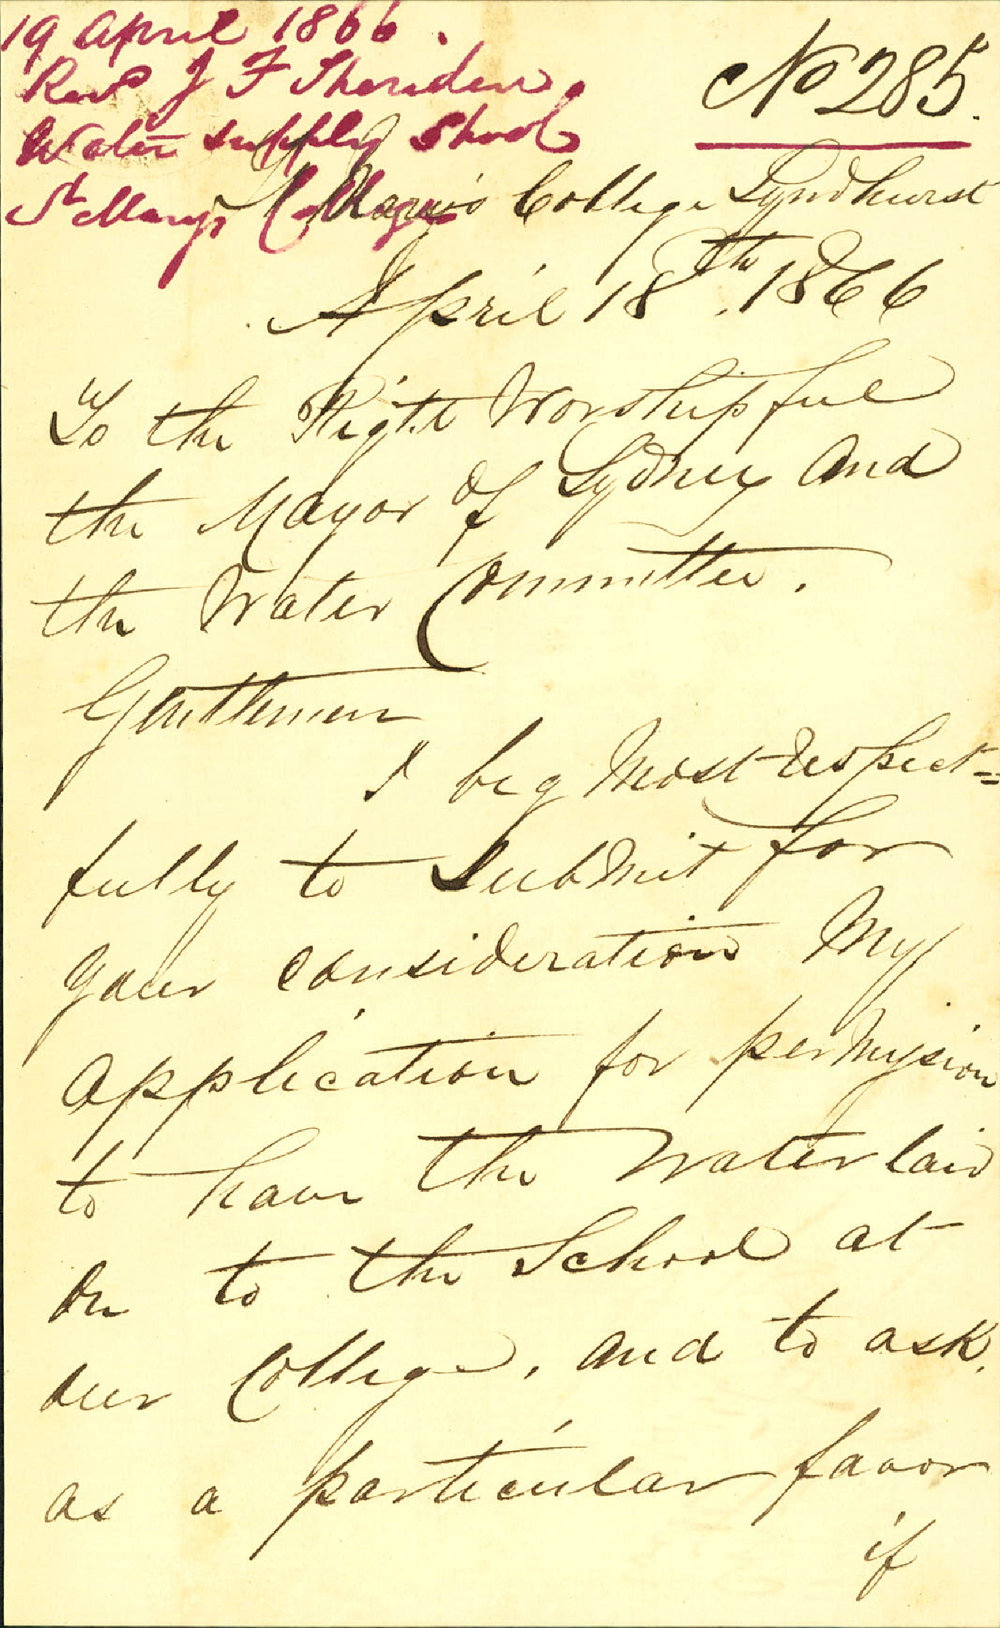 19 April 1866.
Revd J F Sheridan
Water supply School
St Mary's College
No 285.
St Mary's College Lyndhurst
April 18th. 1866
To the Right Worshipful
the Mayor of Sydney and
the Water Committee.
Gentlemen
I beg most respect=
fully to submit for
your consideration my
application for permysion
to have the water laid
on to the School at
our College, and to ask,
as a particular favor
if